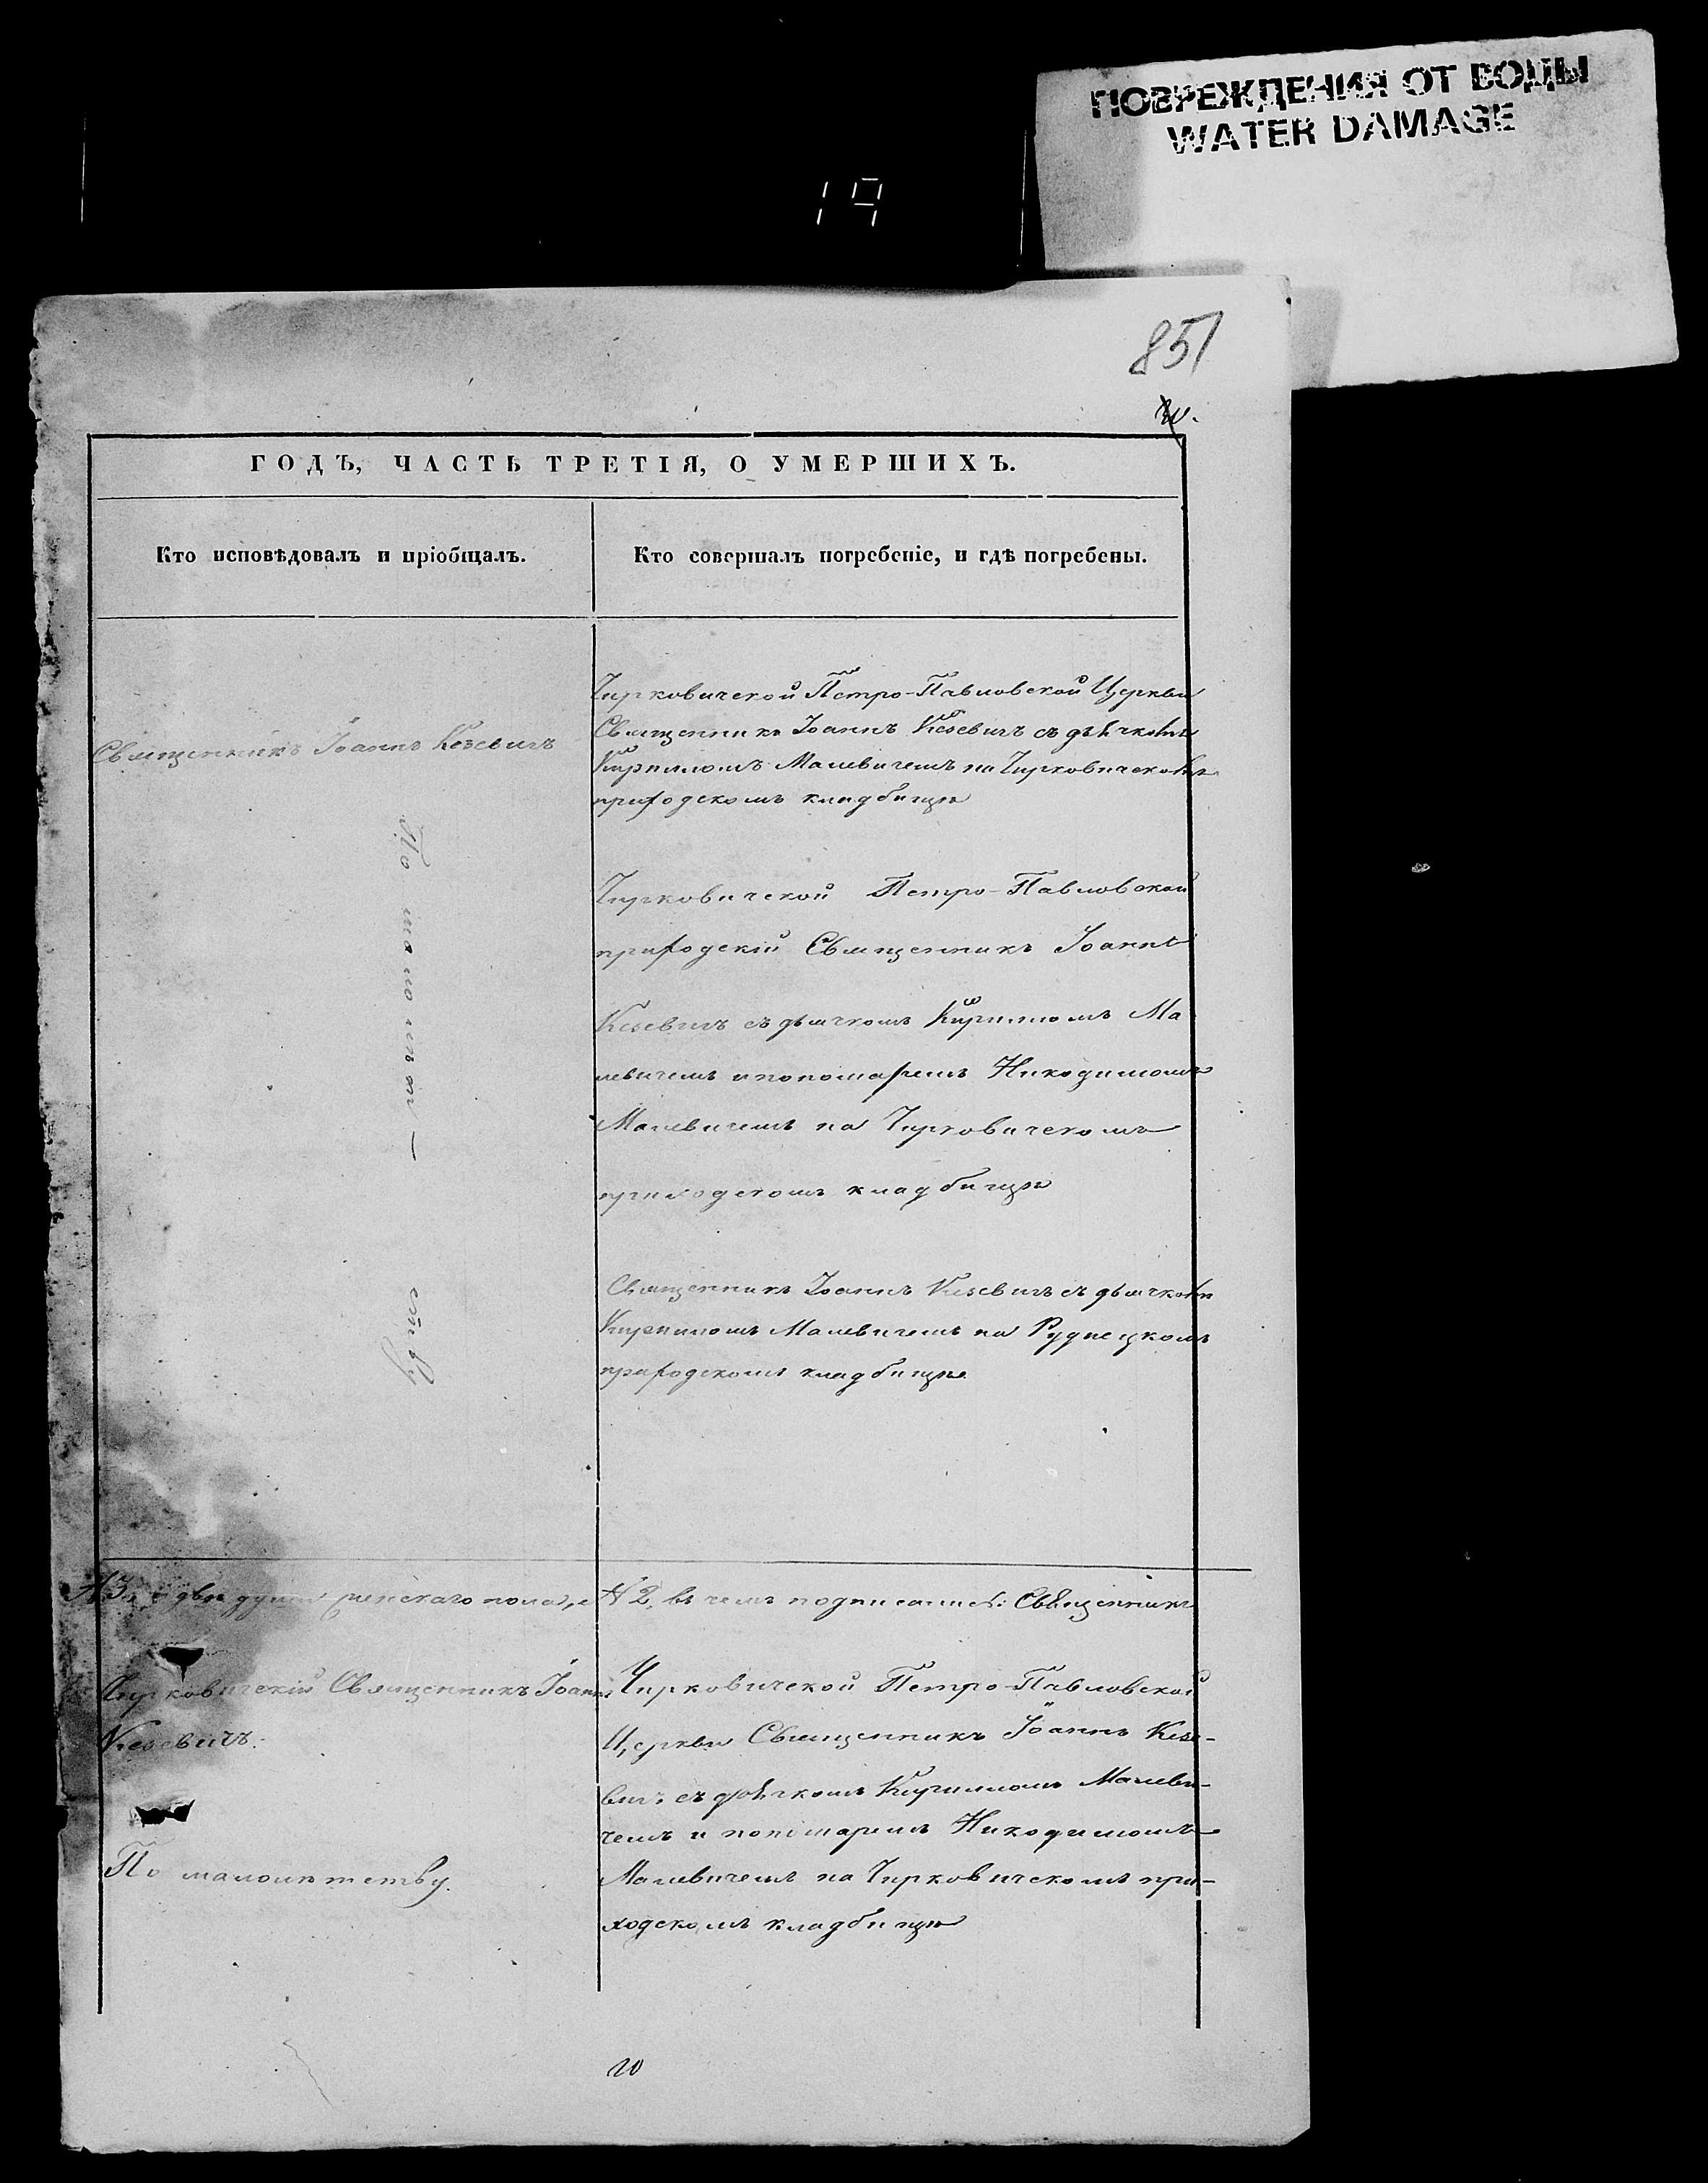 ПОВРЕЖДЕНИЯ ОТ ВОДЫ
WATER DAMAGE
19
851
ГОДЪ, ЧАСТЬ ТРЕТІЯ, О УМЕРШИХЪ.
Кто исповѣдовалъ и пріобщалъ.
Кто совершалъ погребеніе, и гдѣ погребены.
Священникъ Іоаннъ Кезевичъ
По малолѣт—
ству
Чирковической Петро-Павловской Церкви
Священникъ Іоаннъ Кезевичъ съ дьячкомъ
Кирилломъ Малевичемъ на Чирковическомъ
приходскомъ кладбищѣ
Чирковической Петро-Павловской
приходскій Священникъ Іоаннъ
Кезевичъ съ дьячкомъ Кирилломъ Ма
левичемъ и пономаремъ Никодимомъ
Малевичемъ на Чирковическомъ
приходскомъ кладбищѣ
Священникъ Іоаннъ Кезевичъ съ дьячкомъ
Кирилломъ Малевичемъ на Руднецкомъ
приходскомъ кладбищѣ
двѣ души женскаго пола, № 2, въ чемъ подписались: Священникъ
Чирковическій Священникъ Іоаннъ
Кезевичъ.
По малолѣтству.
Чирковической Петро-Павловской
Церкви Священникъ Іоаннъ Кезе-
вичъ съ дьячкомъ Кирилломъ Малеви-
чемъ и пономаремъ Никодимомъ
Малевичемъ на Чирковическомъ при-
ходскомъ кладбищѣ